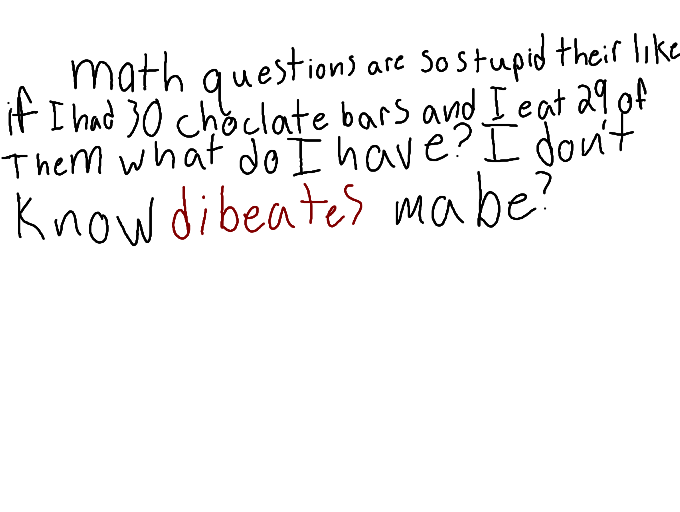 math questions are so stupid their like
if I had 30 choclate bars and I eat 29 of
Them what do I have? I don't
know dibeates mabe?